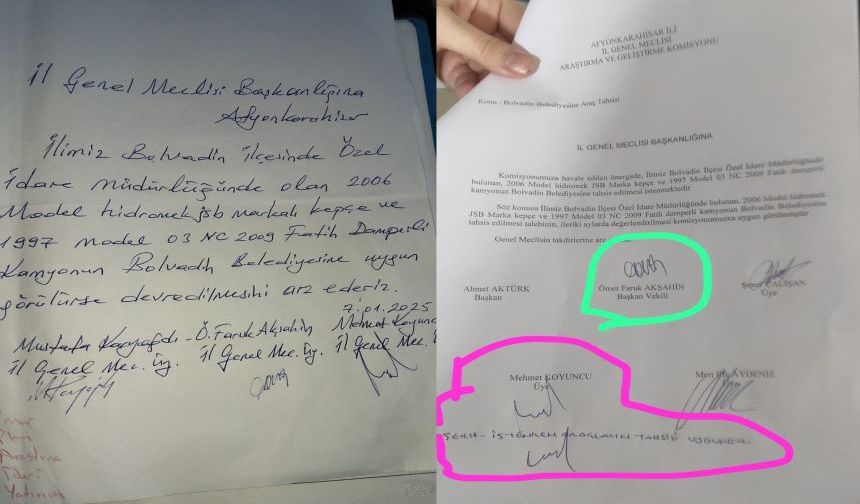 İl Genel Meclisi Başkanlığına
Afyonkarahisar
İlimiz Bolvadin ilçesinde Özel
İdare Müdürlüğünde olan 2006
Model hidromek jsb markalı kepçe ve
1997 model 03 NC 2009 Fatih Damperli
Kamyonun Bolvadin Belediyesine uygun
görülürse devredilmesini arz ederiz.
7.01.2025
Ö. Faruk Akşahin Mehmet Koyunc
İl Genel Mec. Üy. İl Genel Mec. Üy. İl Genel Mec.
Araştırma
Yatırım
AFYONKARAHİSAR İLİ
İL GENEL MECLİSİ
ARAŞTIRMA VE GELİŞTİRME KOMİSYONU
Konu : Bolvadin Belediyesine Araç Tahsisi
İL GENEL MECLİSİ BAŞKANLIĞINA
Komisyonumuza havale edilen önergede, İlimiz Bolvadin İlçesi Özel İdare Müdürlüğünde
bulunan, 2006 Model hidromek JSB Marka kepçe ve 1997 Model 03 NC 2009 Fatih damperli
kamyonun Bolvadin Belediyesine tahsis edilmesi istenmektedir
Söz konusu İlimiz Bolvadin İlçesi Özel İdare Müdürlüğünde bulunan, 2006 Model hidromek
JSB Marka kepçe ve 1997 Model 03 NC 2009 Fatih damperli kamyonun Bolvadin Belediyesine
tahsis edilmesi talebinin, ileriki aylarda değerlendirilmesi komisyonumuzca uygun görülmüştür
Genel Meclisin takdirlerine arz
Ahmet AKTÜRK
Başkan
Ömer Faruk AKŞAHİN
Başkan Vekili
ÇALIŞAN
Üye
Mehmet KOYUNCU
Üye
Mert Efe AYDENİZ
Üye
ŞERH - İSTENİLEN ARAÇLARIN TAHSİSİ